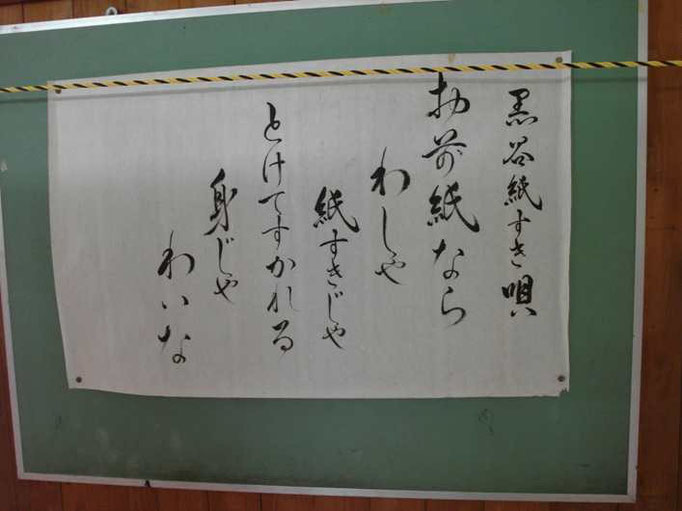 黒谷紙すき唄
お前紙なら
わしや
紙すきじや
とけてすかれる
身じや
わいな